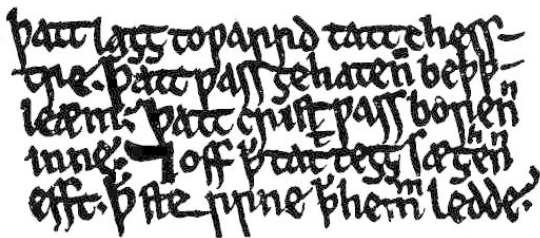 Þatt lagg toƿarrd tatt chess-
tre. Þatt ƿass gehatenn beþþ-
leæm. Þatt crist ƿass borenn
inne. ⁊ off þ tatt tegg sæghenn
efft. þ ste rrne þhemm ledde.